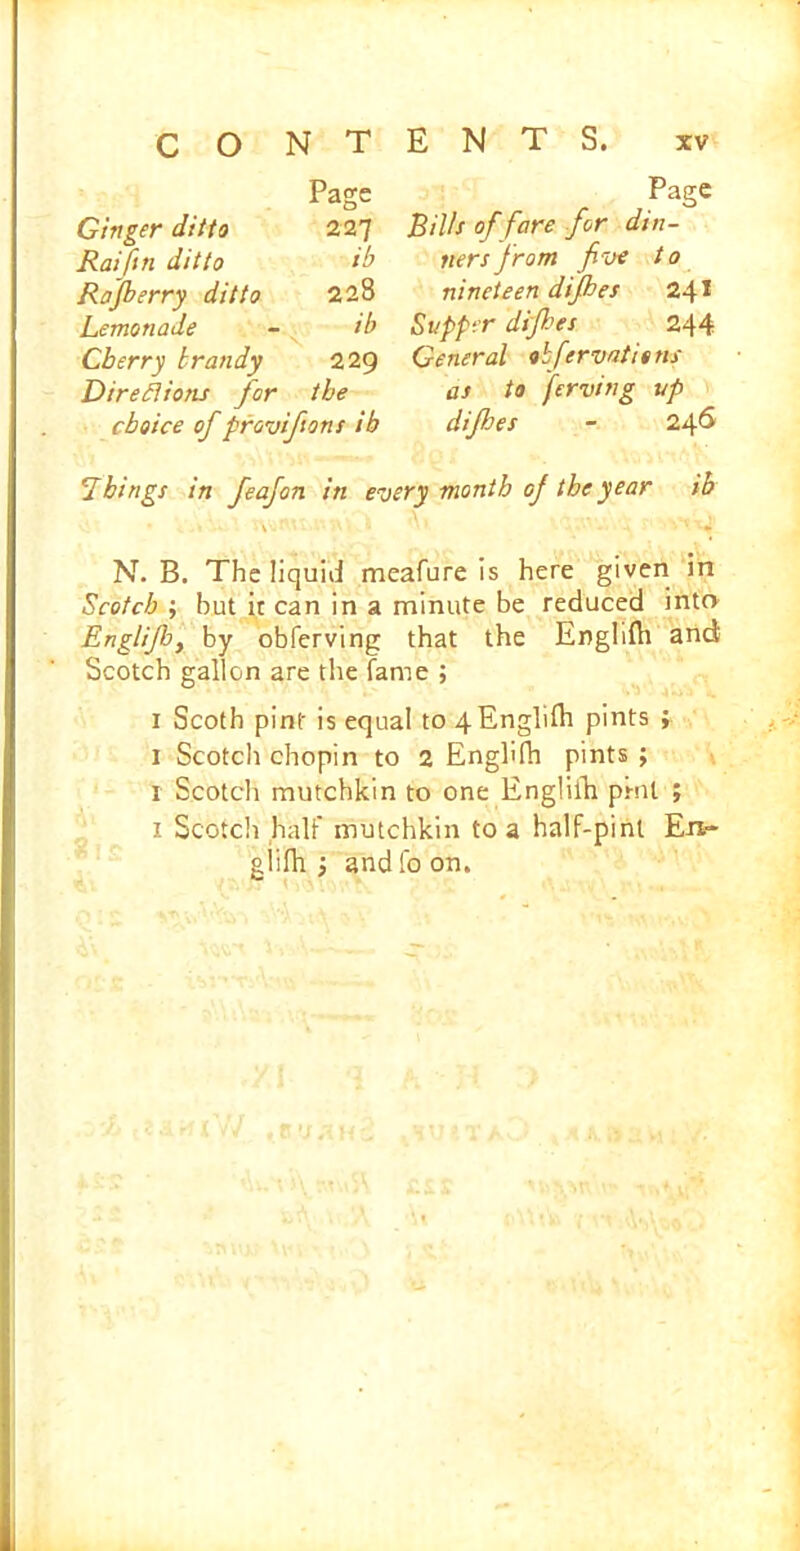 CONTENTS. xv
Page
Ginger ditto 227
Raiſin ditto ib
Raſberry ditto 228
Lemonade - ib
Cherry brandy 229
Directions for the
choice of proviſions ib
Page
Bills of fare for din-
ners from five to
nineteen diſhes 241
Supper diſhes 244
General obſervations
as to ſerving up
diſhes - 246
Things in ſeaſon in every month of the year ib
N. B. The liquid meaſure is here given in
Scotch ; but it can in a minute be reduced into
Engliſh, by obſerving that the Engliſh and
Scotch gallon are the ſame ;
1 Scoth pint is equal to 4 Engliſh pints ;
1 Scotch chopin to 2 Engliſh pints ;
1 Scotch mutchkin to one Engliſh pint ;
1 Scotch half mutchkin to a half-pint En-
gliſh ; and ſo on.